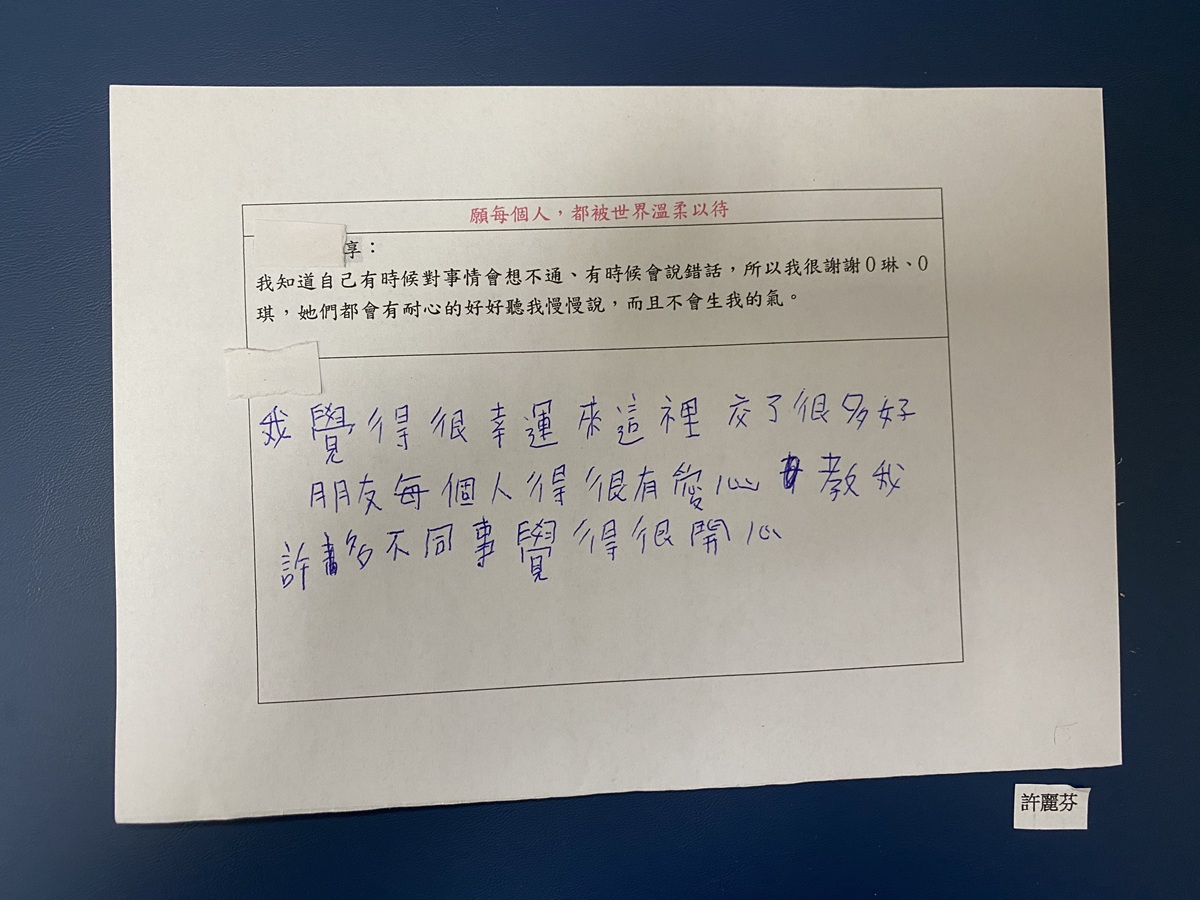 願每個人，都被世界溫柔以待
享：
我知道自己有時候對事情會想不通、有時候會說錯話，所以我很謝謝O琳、O
琪，她們都會有耐心的好好聽我慢慢說，而且不會生我的氣。
我覺得很幸運來這裡 交了很多好
朋友每個人得很有愛心 教我
許多不同事覺得很開心
許麗芬